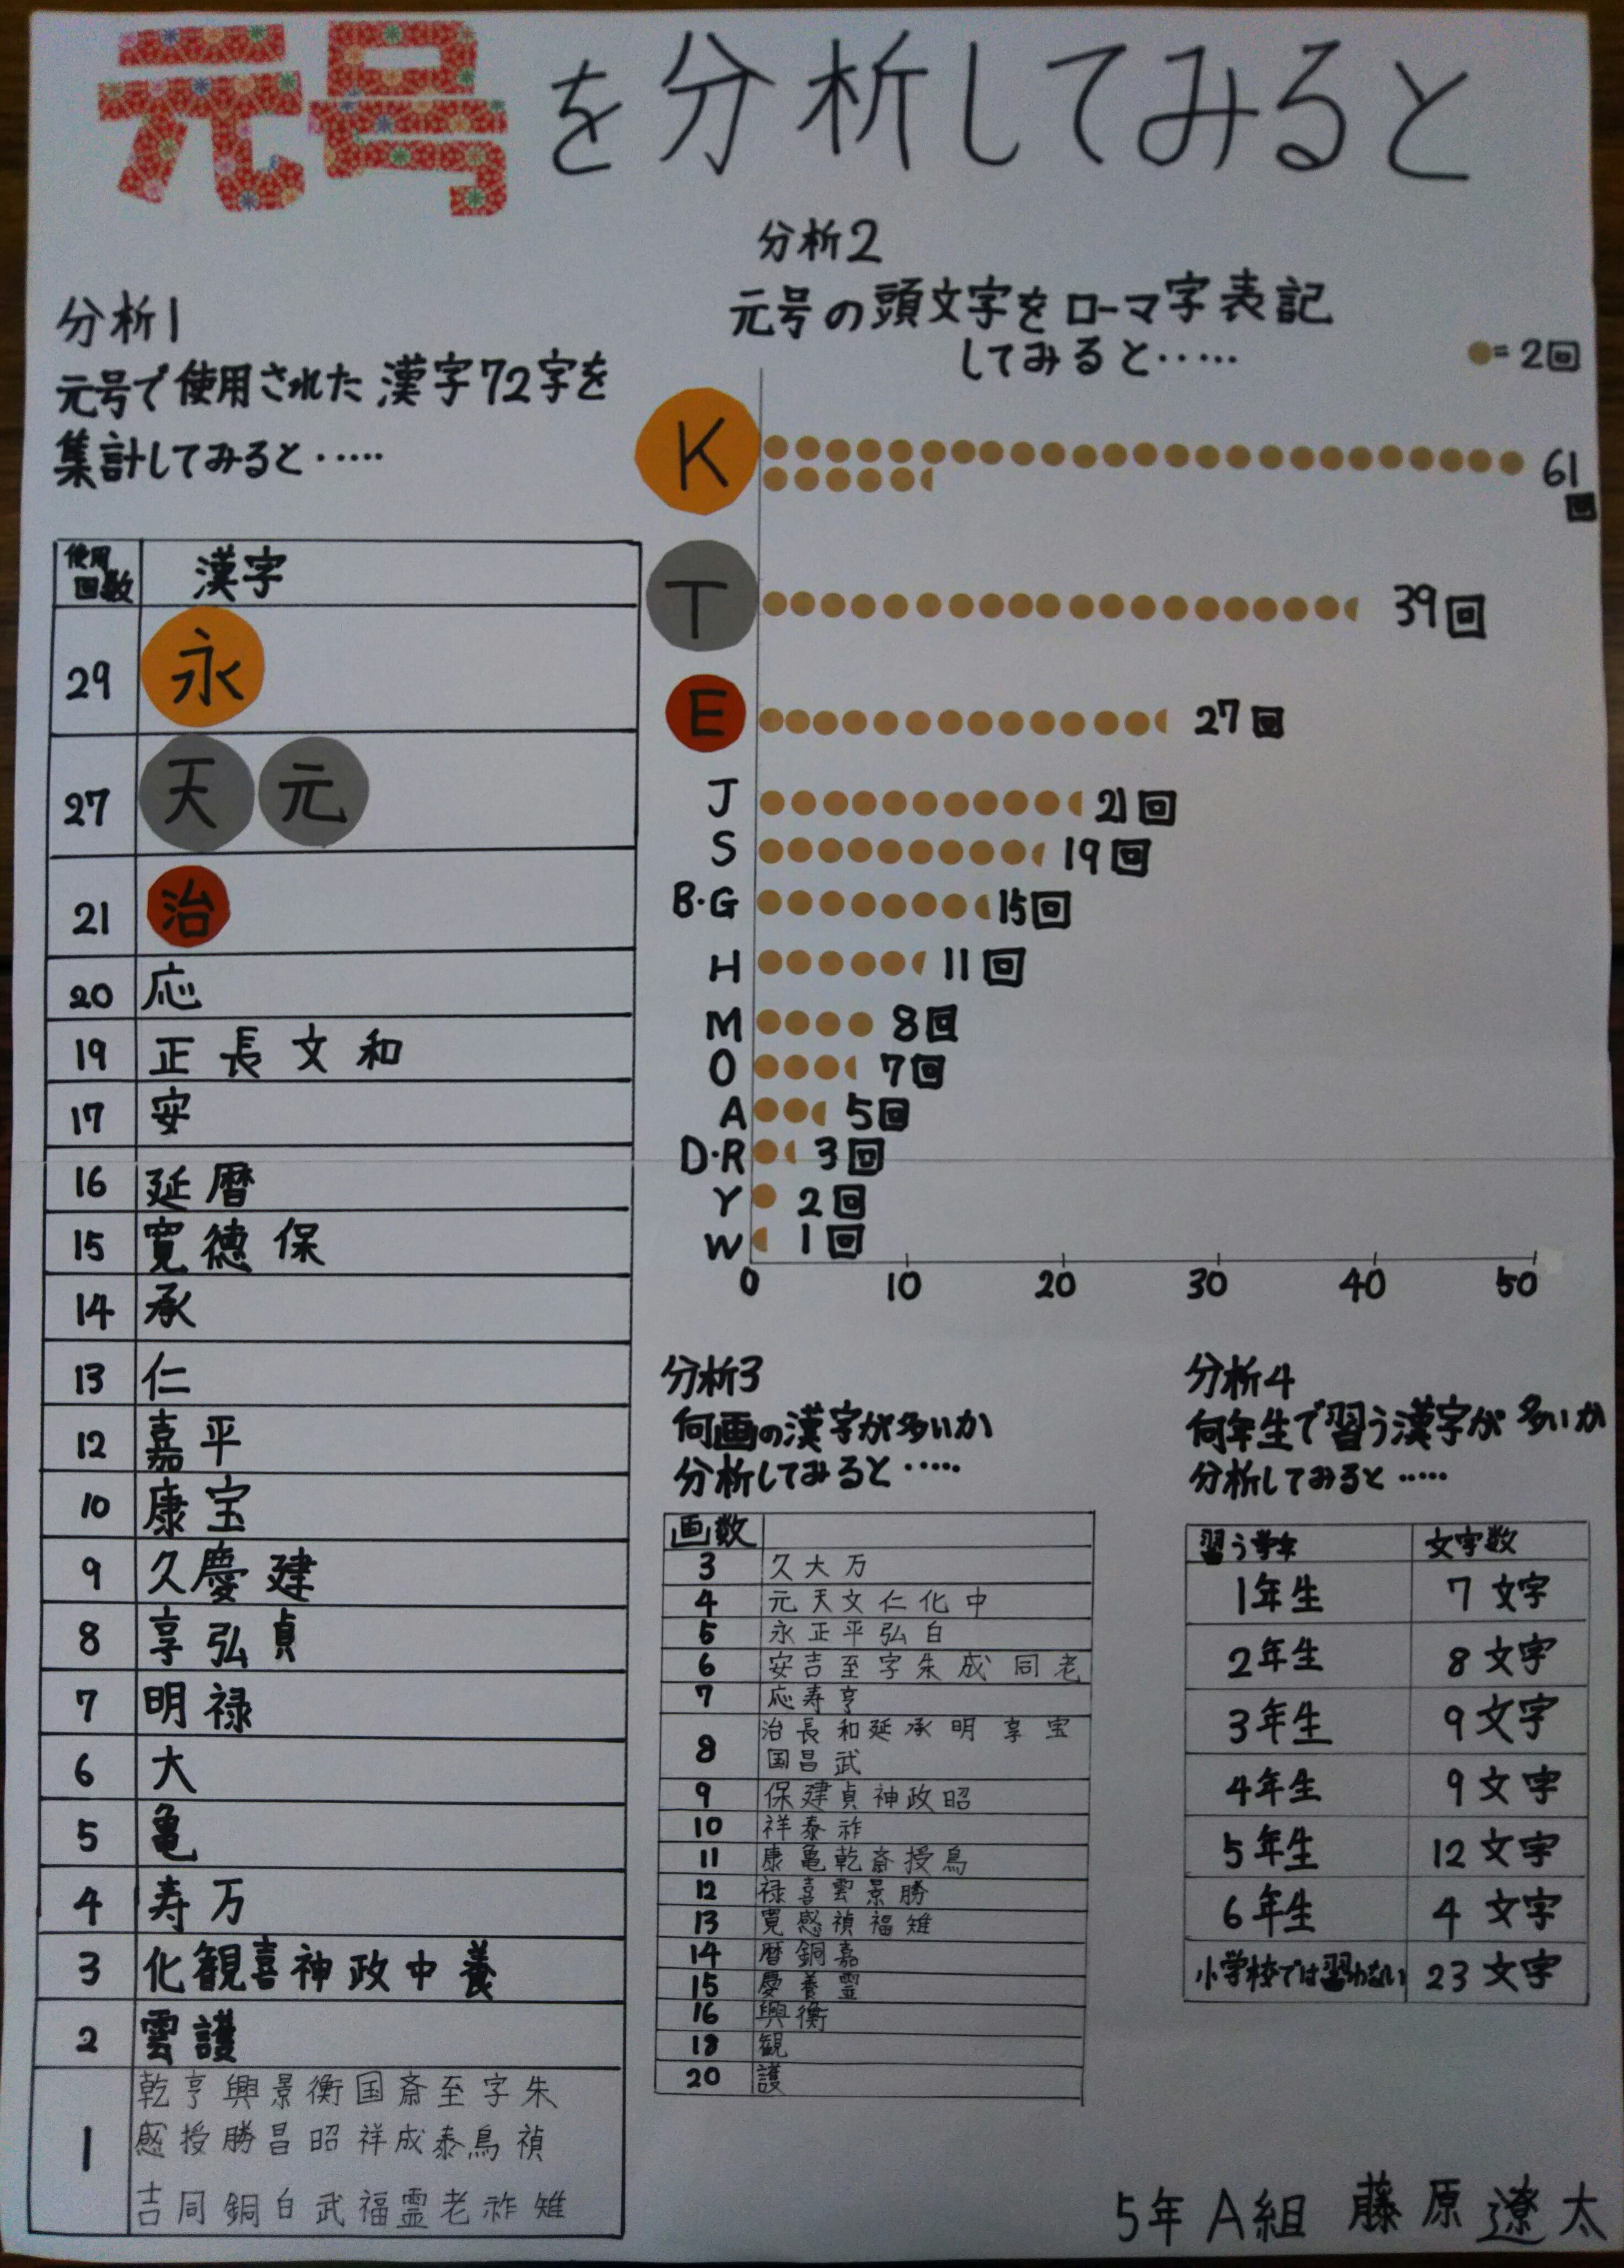 元号を分析してみると
分析1
元号で使用された漢字72字を
集計してみると・・・・・
使用回数 漢字
29 永
27 天 元
21 治
20 応
19 正 長 文 和
17 安
16 延 暦
15 寛 徳 保
14 承
13 仁
12 嘉 平
10 康 宝
9 久 慶 建
8 享 弘 貞
7 明 禄
6 大
5 亀
4 寿 万
3 化 観 喜 神 政 中 養
2 雲 護
1 乾 亨 興 景 衡 国 斎 至 字 朱
感 授 勝 昌 昭 祥 成 泰 鳥 禎
吉 同 銅 白 武 福 霊 老 祚 雉
分析2
元号の頭文字をローマ字表記
してみると・・・・・
●=2回
K 61回
T 39回
E 27回
J 21回
S 19回
B・G 15回
H 11回
M 8回
O 7回
A 5回
D・R 3回
Y 2回
W 1回
0 10 20 30 40 50
分析3
何画の漢字が多いか
分析してみると・・・・・
画数
3 久 大 万
4 元 天 文 仁 化 中
5 永 正 平 弘 白
6 安 吉 至 字 朱 成 同 老
7 応 寿 亨
8 治 長 和 延 承 明 享 宝
国 昌 武
9 保 建 貞 神 政 昭
10 祥 泰 祚
11 康 亀 乾 斎 授 鳥
12 禄 喜 雲 景 勝
13 寛 感 禎 福 雉
14 暦 銅 嘉
15 慶 養 霊
16 興 衡
18 観
20 護
分析4
何年生で習う漢字が多いか
分析してみると・・・・・
習う学年 文字数
1年生 7文字
2年生 8文字
3年生 9文字
4年生 9文字
5年生 12文字
6年生 4文字
小学校では習わない 23文字
5年A組 藤原遼太